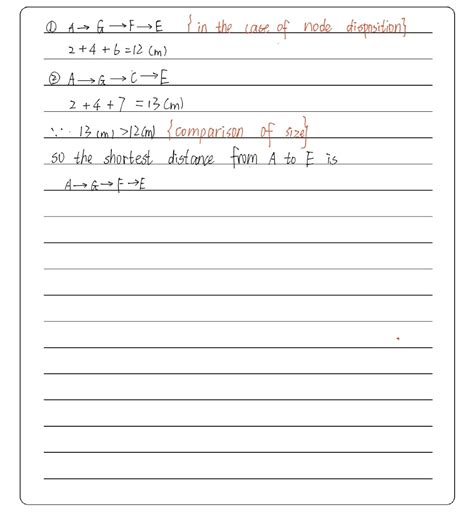 ① A → G → F → E {in the case of node disposition}
2 + 4 + 6 = 12 (m)
② A → G → C → E
2 + 4 + 7 = 13 (m)
∵ 13 (m) > 12 (m) {comparison of size}
so the shortest distance from A to E is
A → G → F → E